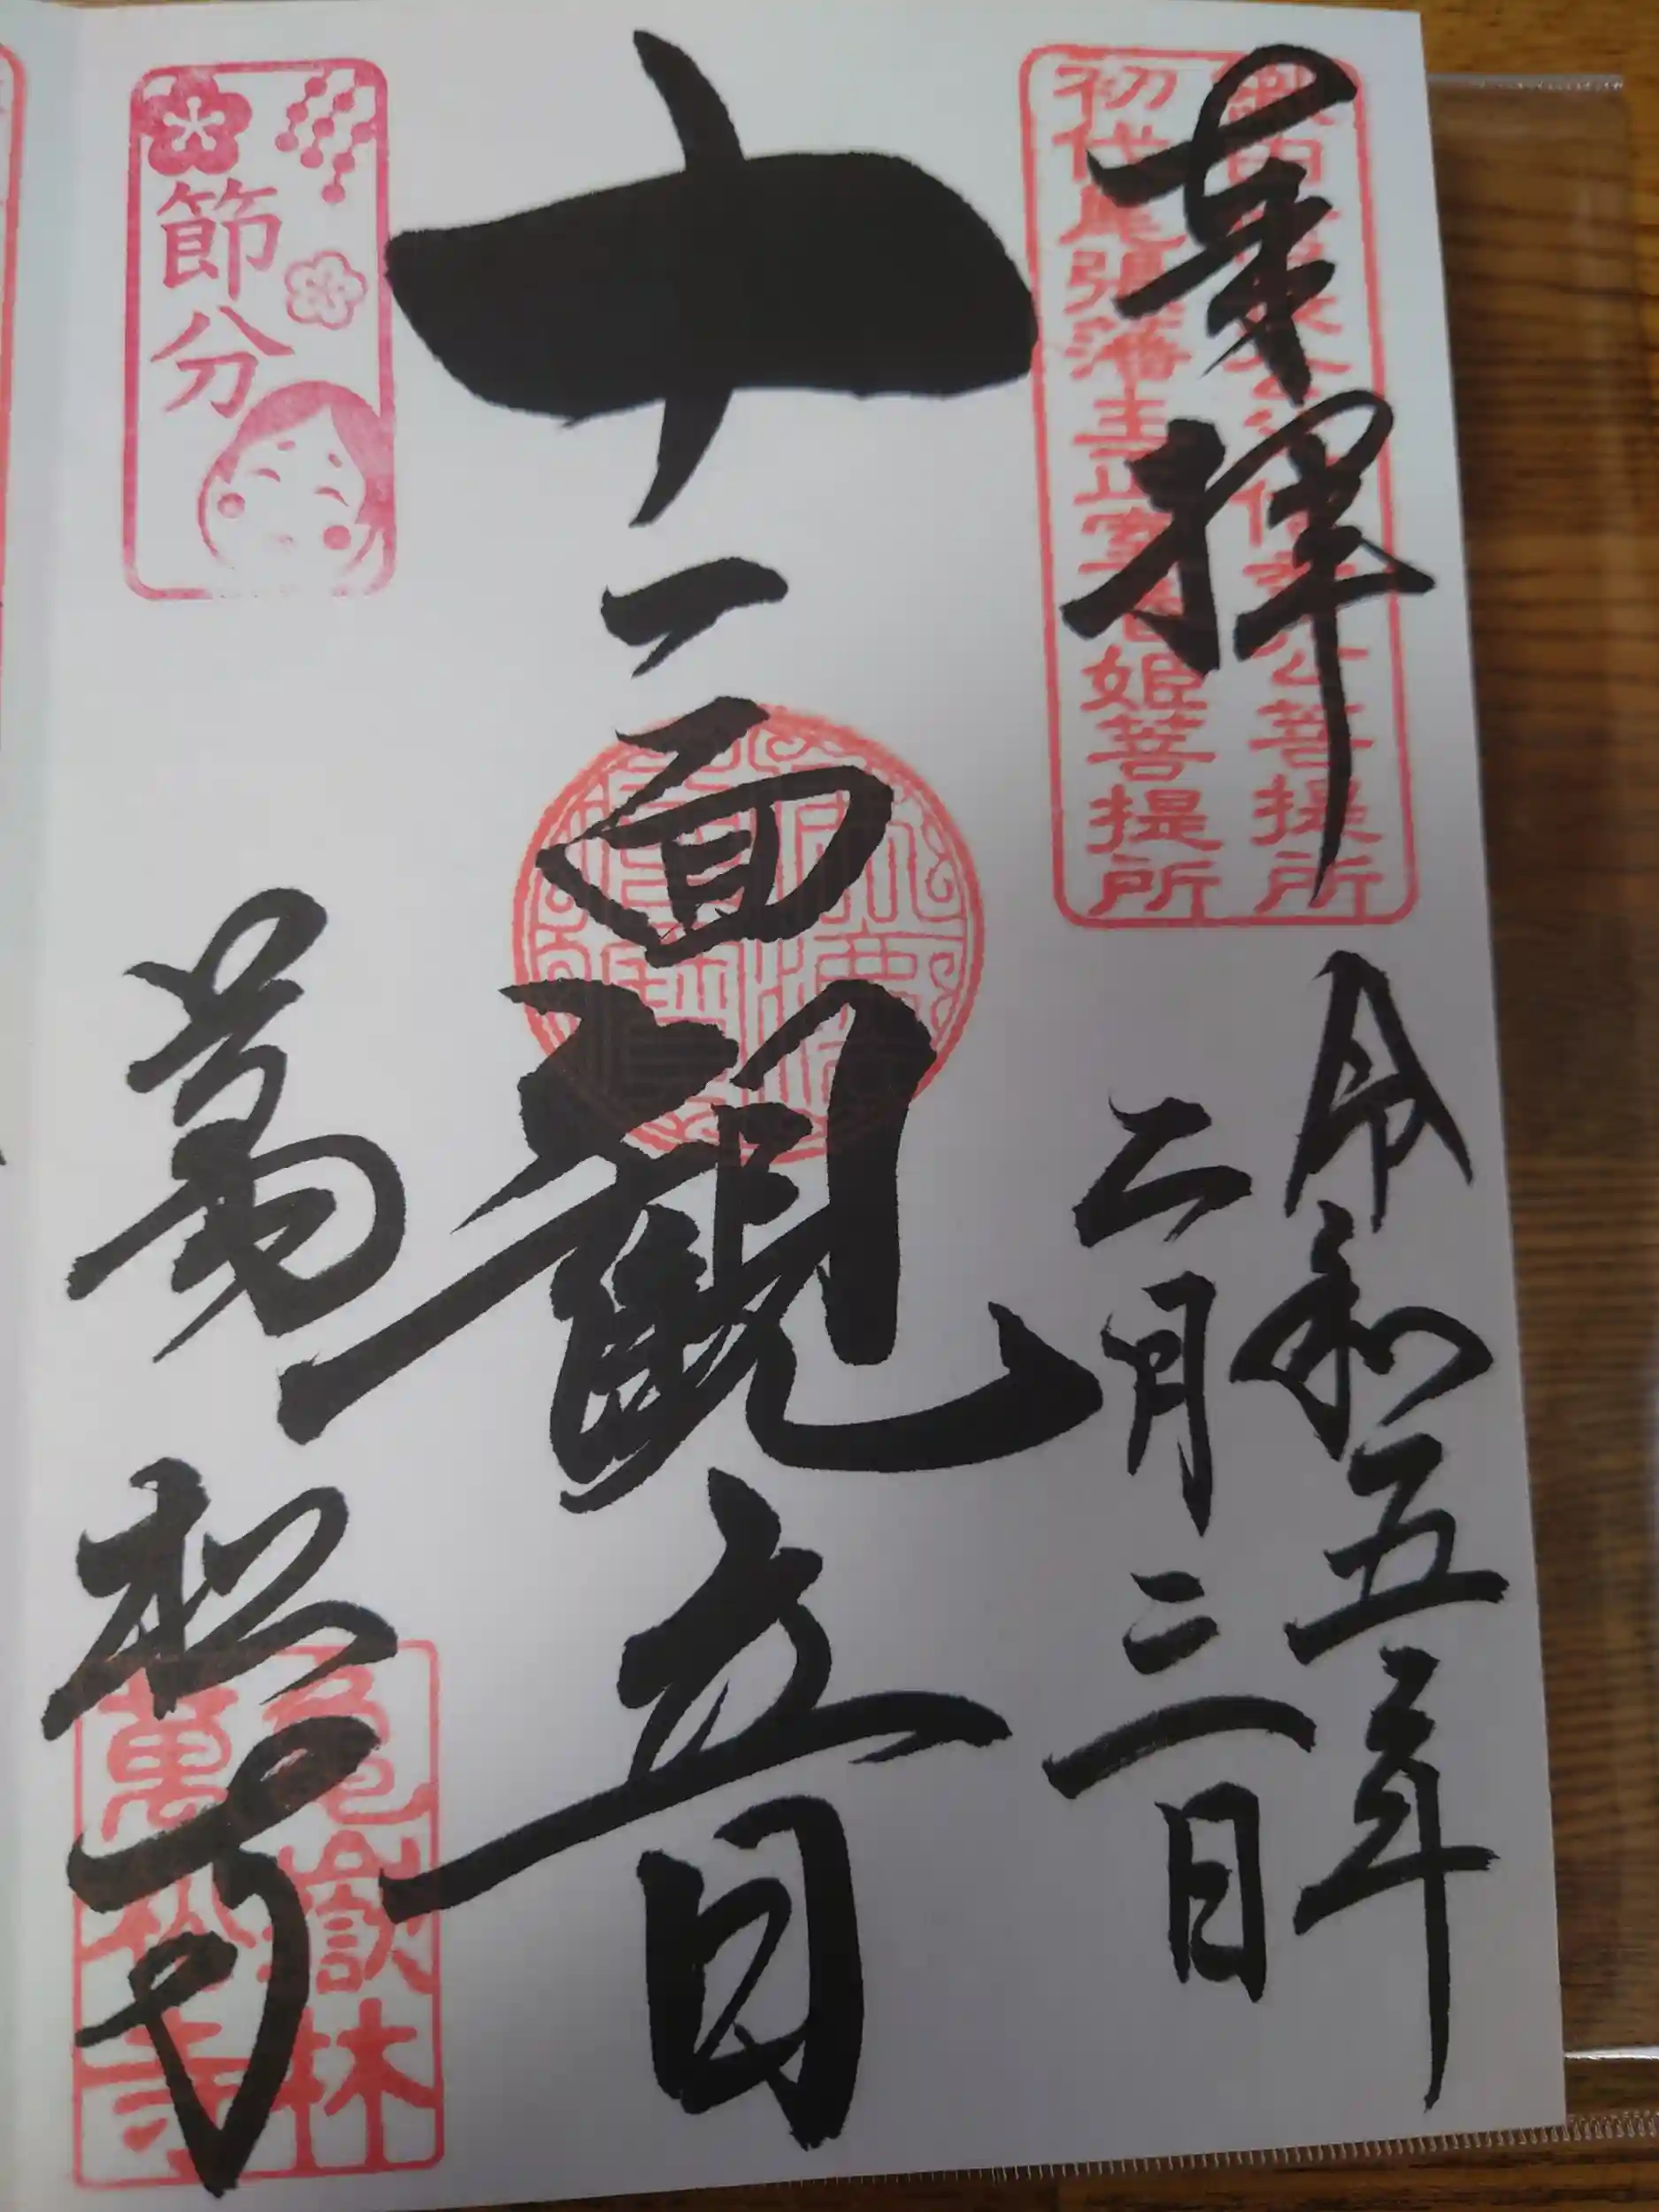 奉拝
令和五年
二月三日
十一面観音
萬松寺
節分
初代尾張藩主正室春姫菩提所
亀嶽林
萬松寺